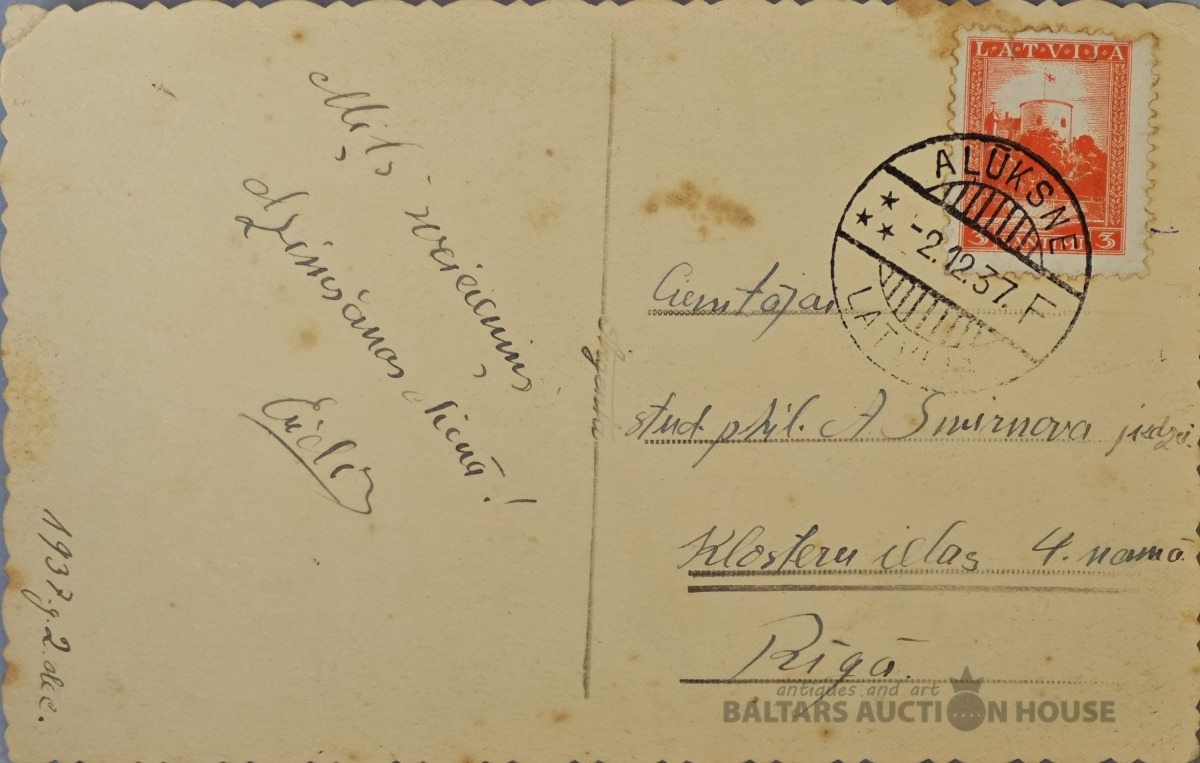 Mīļš sveiciens
dzimšanas dienā!
1937.g. 2. dec.
LATVIJA
3 3
ALŪKSNE
-2.12.37. F
LATVIJA
Cienītājai
stud. phil. A. Smirnova jkdze.
Klosteru ielas 4. namā
Rīgā.
antiques and art
BALTARS AUCTION HOUSE